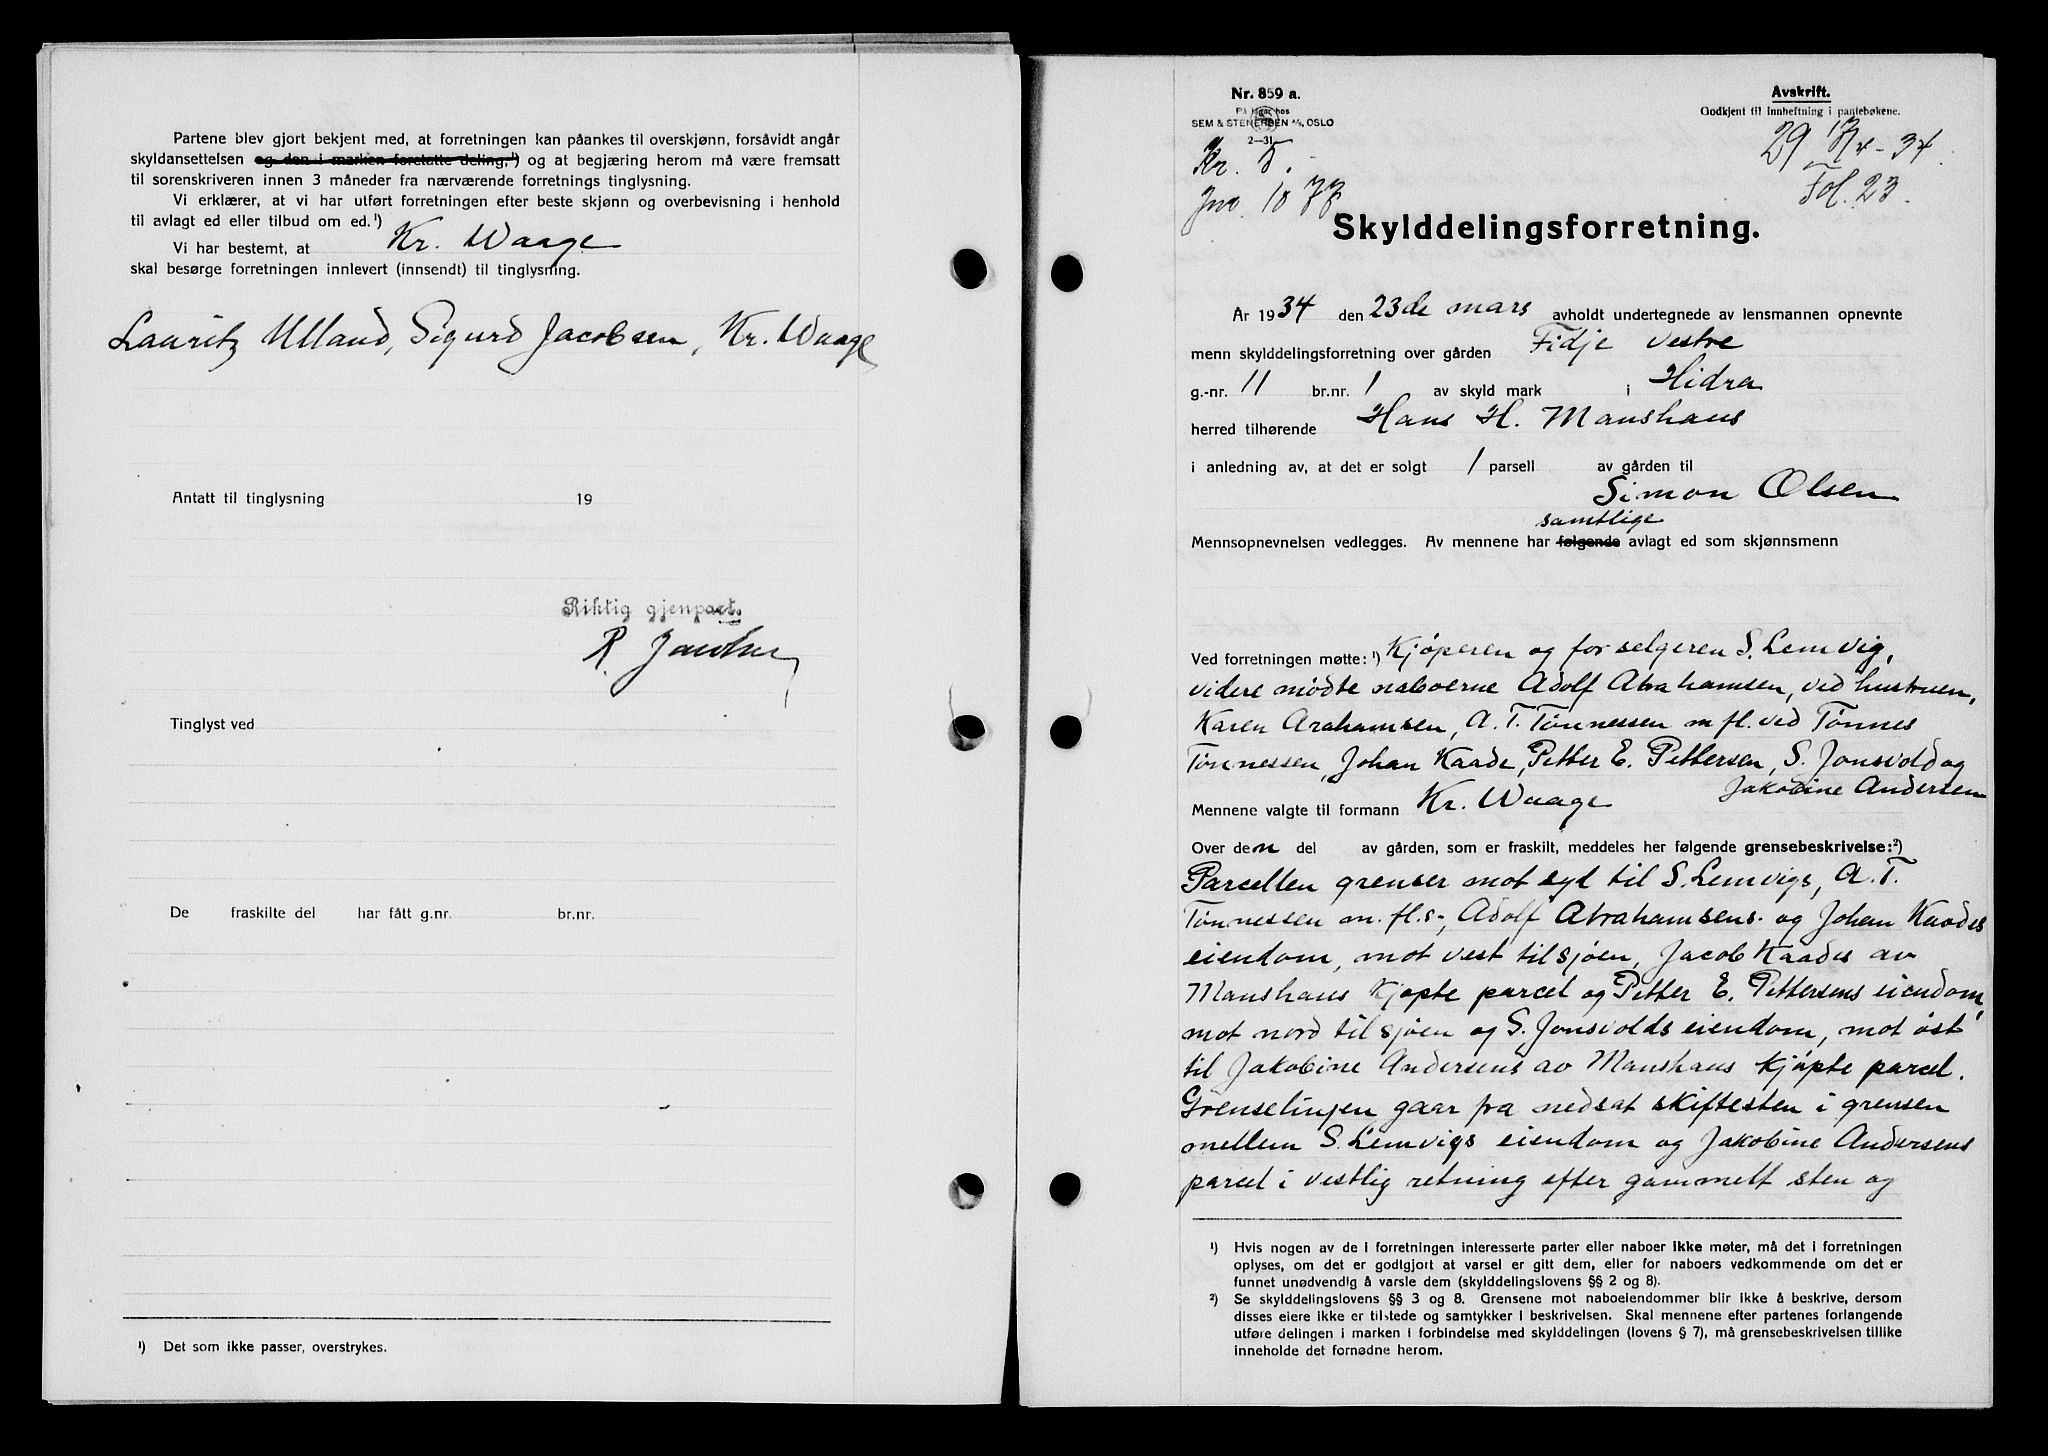 Partene blev gjort bekjent med, at forretningen kan påankes til overskjønn, forsåvidt angår
skyldansettelsen og den i marken foretatte deling,¹) og at begjæring herom må være fremsatt
til sorenskriveren innen 3 måneder fra nærværende forretnings tinglysning.
Vi erklærer, at vi har utført forretningen efter beste skjønn og overbevisning i henhold
til avlagt ed eller tilbud om ed.¹)
Vi har bestemt, at Kr. Waage
skal besørge forretningen innlevert (innsendt) til tinglysning.
Lauritz Ulland, Sigurd Jacobsen, Kr. Waage
Antatt til tinglysning 19
Riktig gjenpart.
R. Jacobsen
Tinglyst ved
De fraskilte del har fått g.nr. br.nr.
¹) Det som ikke passer, overstrykes.
Nr. 859 a.
På lager hos
SEM & STENERSEN A/S, OSLO
2—31
Kr. 5.-
Jnr. 1077
Avskrift.
Godkjent til innheftning i pantebøkene.
29 - 34.
Fol. 23.
Skylddelingsforretning.
År 1934 den 23de mars avholdt undertegnede av lensmannen opnevnte
menn skylddelingsforretning over gården Fidje vestre
g.-nr. 11 br.nr. 1 av skyld mark i Hidra
herred tilhørende Hans H. Manshaus
i anledning av, at det er solgt 1 parsell av gården til
Simon Olsen
samtlige
Mennsopnevnelsen vedlegges. Av mennene har følgende avlagt ed som skjønnsmenn
Ved forretningen møtte: ¹) Kjøperen og for selgeren S. Lemvig,
videre mødte naboerne Adolf Abrahamsen, ved hustruen,
Karen Arahamsen, A. T. Tønnessen m fl. ved Tønnes
Tønnessen, Johan Kaade, Petter E. Pettersen, S. Jonsvold og
Jakobine Andersen
Mennene valgte til formann Kr. Waage
Over den del av gården, som er fraskilt, meddeles her følgende grensebeskrivelse:²)
Parcellen grenser mot syd til S. Lemvigs, A. T.
Tønnessen m. fl.s-, Adolf Abrahamsens- og Johan Kaades
eiendom, mot vest til sjøen, Jacob Kaades av
Manshaus kjøpte parcel og Petter E. Pettersens eiendom,
mot nord til sjøen og S. Jonsvolds eiendom, mot øst
til Jakobine Andersens av Manshaus kjøpte parcel.
Grenselinjen gaar fra nedsat skiftesten i grensen
mellem S. Lemvigs eiendom og Jakobine Andersens
parcel i vestlig retning efter gammelt sten og
¹) Hvis nogen av de i forretningen interesserte parter eller naboer ikke møter, må det i forretningen
oplyses, om det er godtgjort at varsel er gitt dem, eller for naboers vedkommende om det er
funnet unødvendig å varsle dem (skylddelingslovens §§ 2 og 8).
²) Se skylddelingslovens §§ 3 og 8. Grensene mot naboeiendommer blir ikke å beskrive, dersom
disses eiere ikke er tilstede og samtykker i beskrivelsen. Skal mennene efter partenes forlangende
utføre delingen i marken i forbindelse med skylddelingen (lovens § 7), må grensebeskrivelsen tillike
inneholde det fornødne herom.